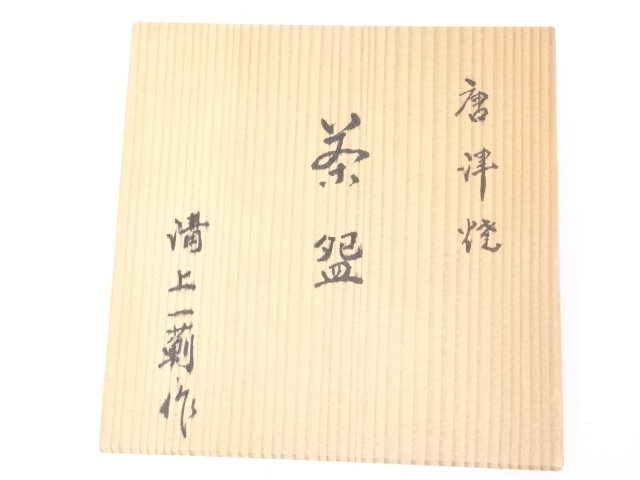 唐津焼
茶盌
溝上一薊作